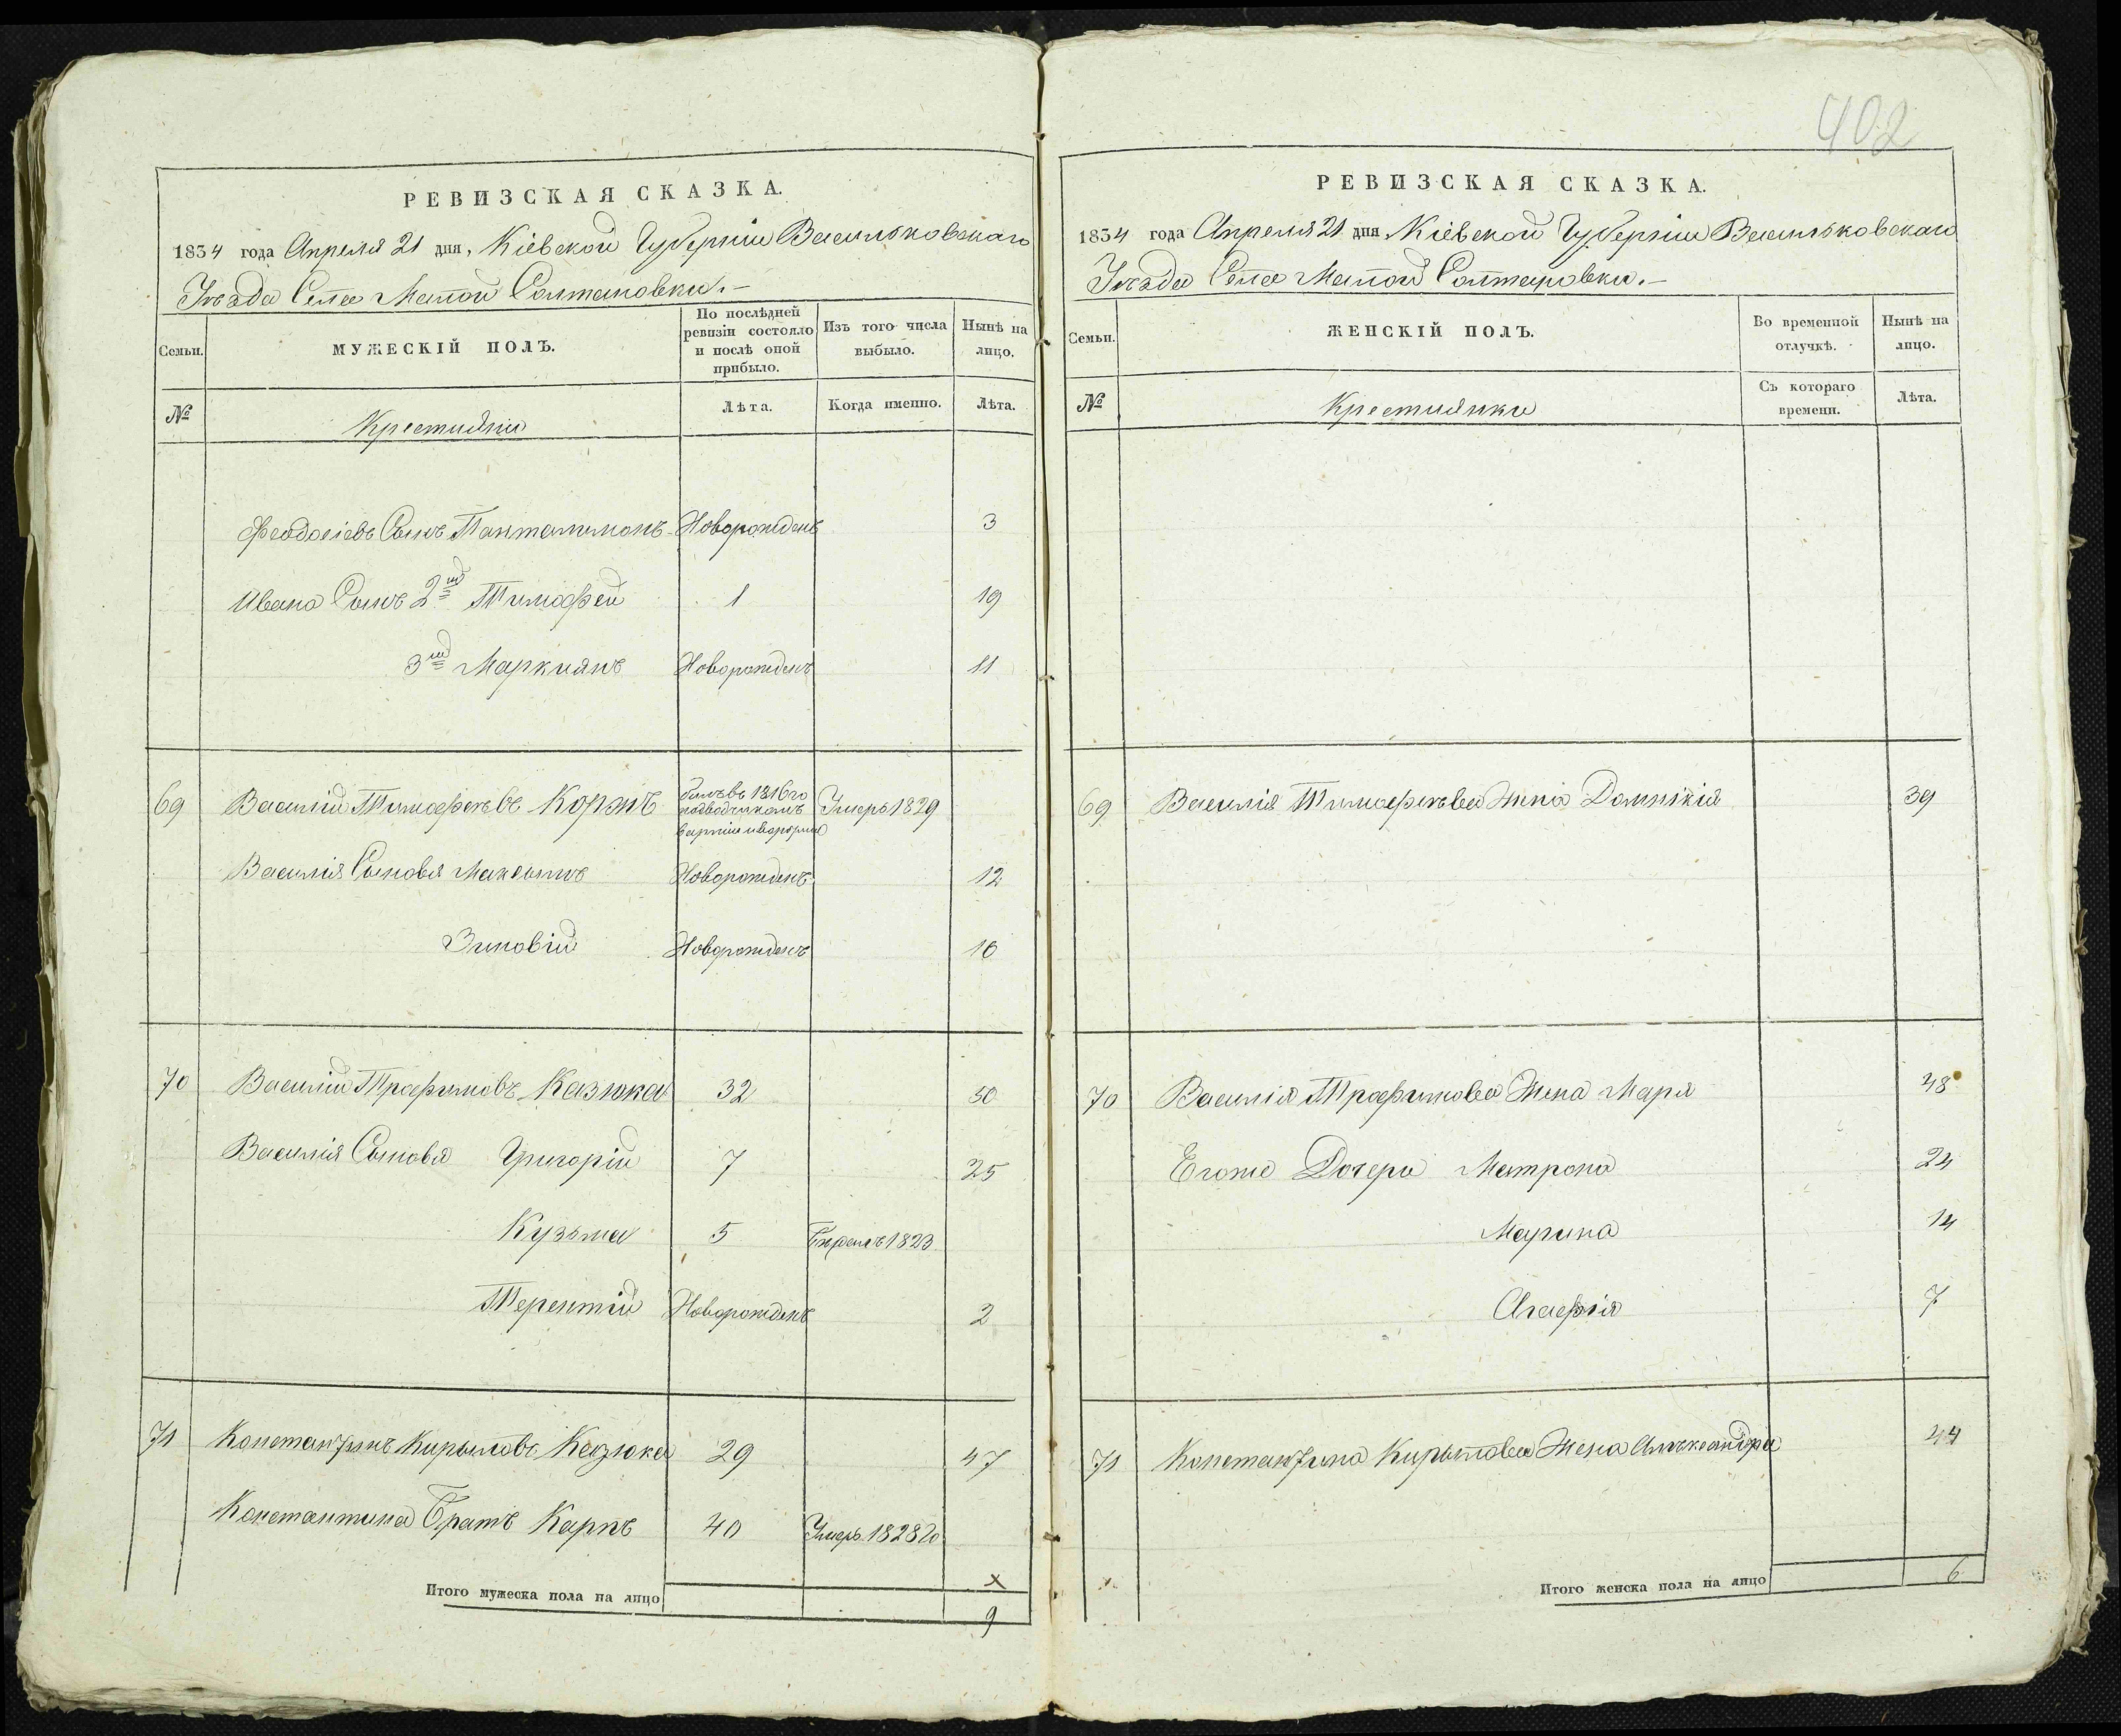 402
РЕВИЗСКАЯ СКАЗКА.
1834 года Апреля 21 дня, Кіевской Губерніи Васильковскаго
Уѣзда Села Малой Солтановки.-
Семьи.
МУЖЕСКІЙ ПОЛЪ.
По послѣдней ревизіи состояло и послѣ оной прибыло.
Изъ того числа выбыло.
Нынѣ на лицо.
№
Крестьяни
Лѣта.
Когда именно.
Лѣта.
Феодосіевъ Сынъ Панталимонъ Новорожденъ 3
Ивана Сынъ 2й Тимофей 1 19
3й Маркиянъ Новорожденъ 11
69 Василій Тимофеевъ Коржъ былъ въ 1816го подводчикомъ Умеръ 1829
Василія Сыновя Максимъ Новорожденъ 12
Зиновій Новорожденъ 10
70 Василій Трофимовъ Казюка 32 50
Василія Сыновя Григорій 7 25
Кузьма 5 1823
Терентій Новорожденъ 2
71 Константинъ Кирыловъ Казюка 29 47
Константина Братъ Карпъ 40 Умеръ 1828го
Итого мужеска пола на лицо 9
РЕВИЗСКАЯ СКАЗКА.
1834 года Апреля 21 дня Кіевской Губерніи Васильковскаго
Уѣзда Села Малой Солтановки.-
Семьи.
ЖЕНСКІЙ ПОЛЪ.
Во временной отлучкѣ.
Нынѣ на лицо.
№
Крестьянки
Съ котораго времени.
Лѣта.
69 Василія Тимофеева Жена Домникія 39
70 Василія Трофимова Жена Маря 48
Егоже Дочери Матрона 24
Марина 14
Агафія 7
71 Константина Кирылова Жена Алѣксандра 44
Итого женска пола на лицо 6